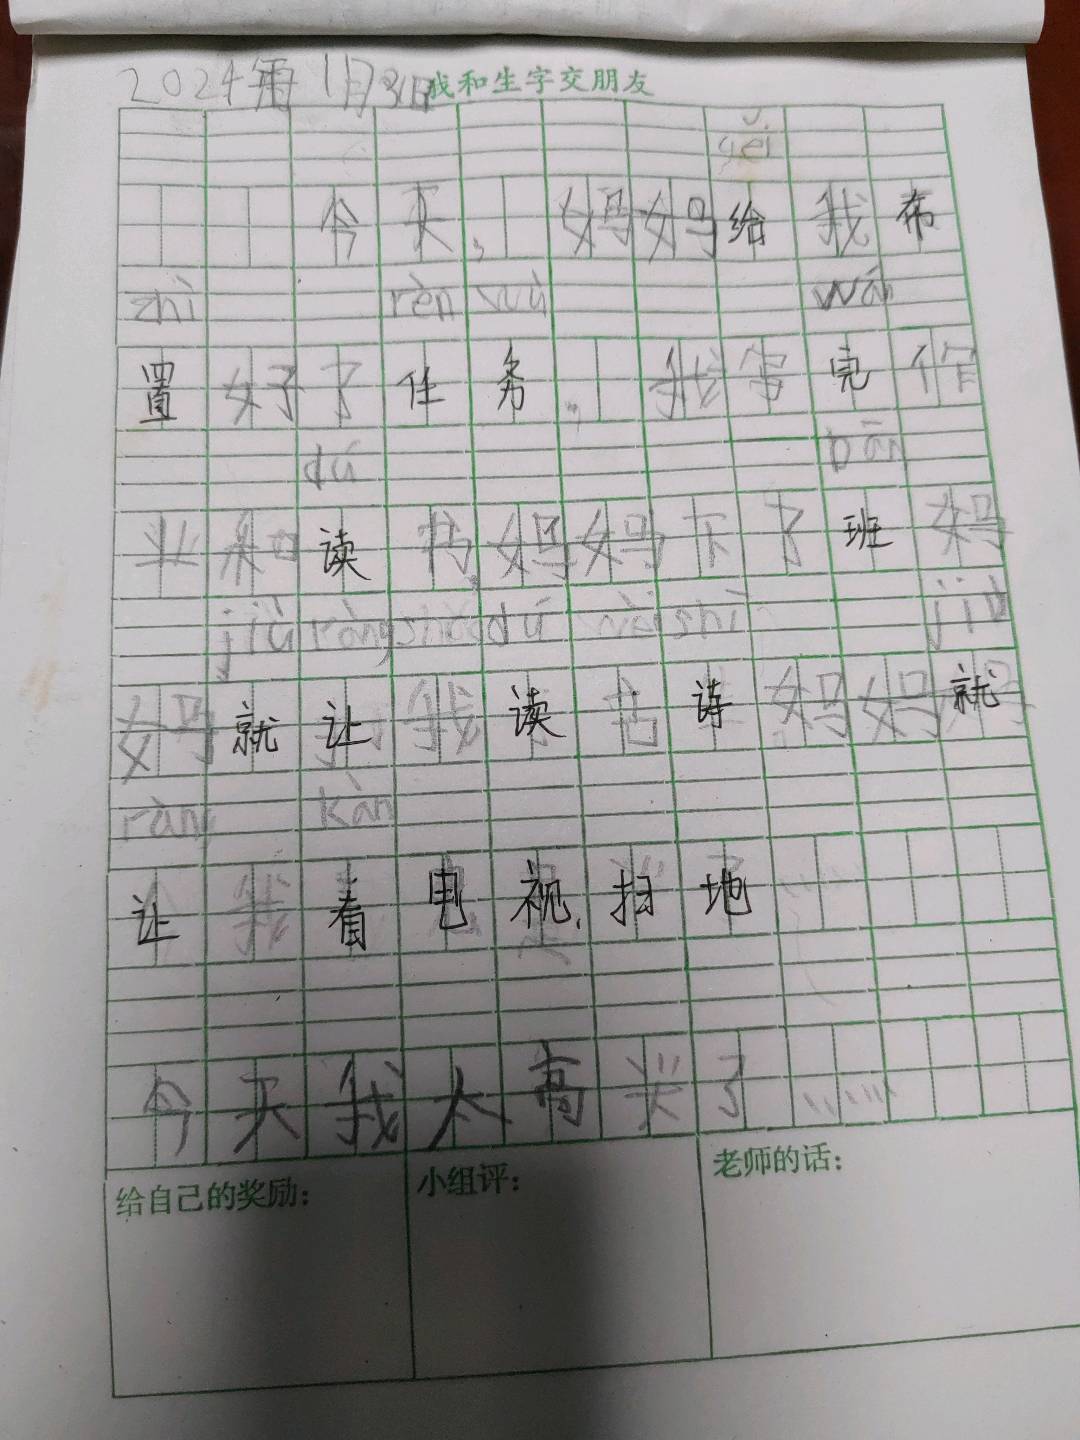 2024年1月3日我和生字交朋友
gěi
今天,妈妈给我布
zhì rèn wù wán
置好了任务,我写完作
dú bān
业和读书,妈妈下了班妈
jiù ràng dú shī jiù
妈就让我读古诗妈妈就
ràng kàn
让我看电视,扫地
今天我太高兴了......
给自己的奖励:
小组评:
老师的话: